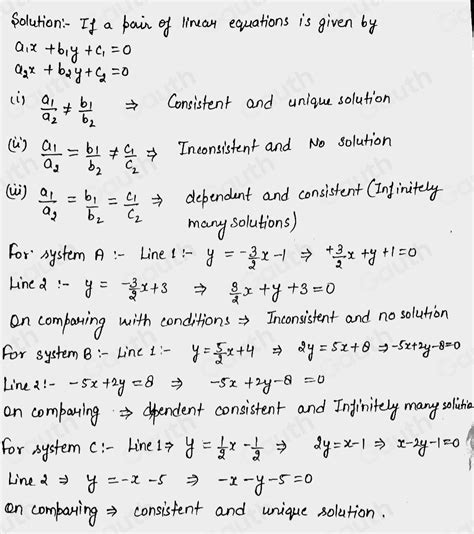 Solution:- If a pair of linear equations is given by
a₁x + b₁y + c₁ = 0
a₂x + b₂y + c₂ = 0
(i) a₁/a₂ ≠ b₁/b₂ ⇒ Consistent and unique solution
(ii) a₁/a₂ = b₁/b₂ ≠ c₁/c₂ ⇒ Inconsistent and No solution
(iii) a₁/a₂ = b₁/b₂ = c₁/c₂ ⇒ dependent and consistent (Infinitely
many solutions)
For system A :- Line 1 :- y = -3/2x - 1 ⇒ +3/2x + y + 1 = 0
Line 2 :- y = -3/2x + 3 ⇒ 3/2x + y + 3 = 0
On comparing with conditions ⇒ Inconsistent and no solution
For system B :- Line 1 :- y = 5/2x + 4 ⇒ 2y = 5x + 8 ⇒ -5x + 2y - 8 = 0
Line 2 :- -5x + 2y = 8 ⇒ -5x + 2y - 8 = 0
On comparing ⇒ dpendent consistent and Infinitely many solutio
For system C :- Line 1 ⇒ y = 1/2x - 1/2 ⇒ 2y = x - 1 ⇒ x - 2y - 1 = 0
Line 2 ⇒ y = -x - 5 ⇒ -x - y - 5 = 0
On comparing ⇒ consistent and unique solution.